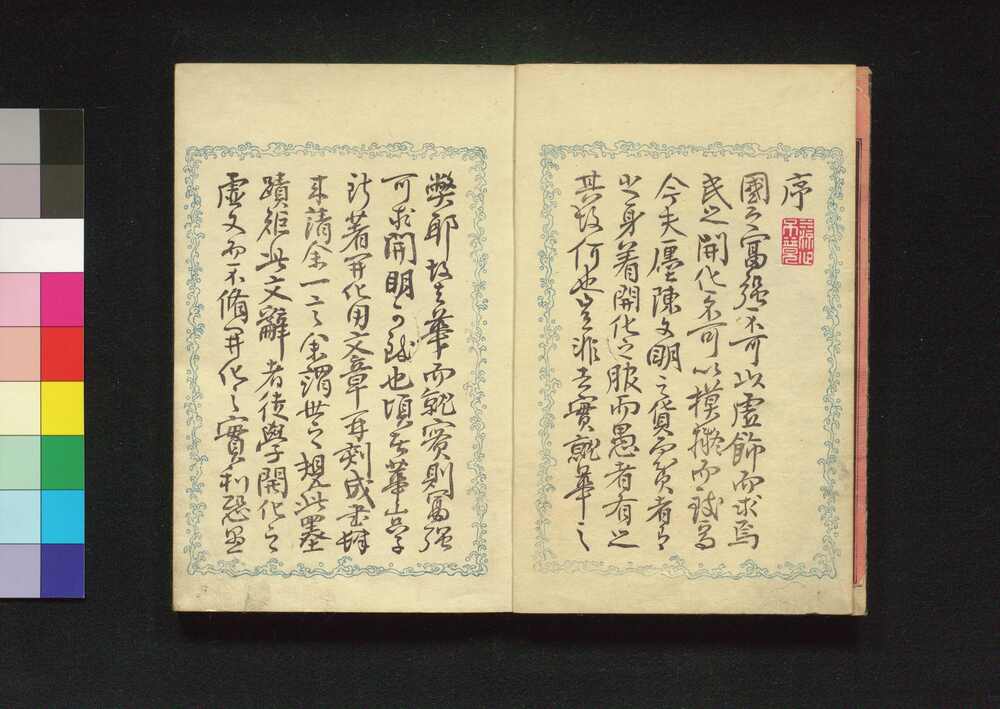 序
國之富强不可以虚飾而求焉
民之開化不可以摸擬而致焉
今夫廛陳文明之貨而貧者有
之身着開化之服而愚者有之
其故何也豈非去實就華之
弊耶故去華而就實則富强
可求開明可致也頃者華山學
新著開化用文章再刻成書肆
来請余一言余謂世之規此墨
蹟範此文辭者徒學開化之
虚文而不脩開化之實利恐